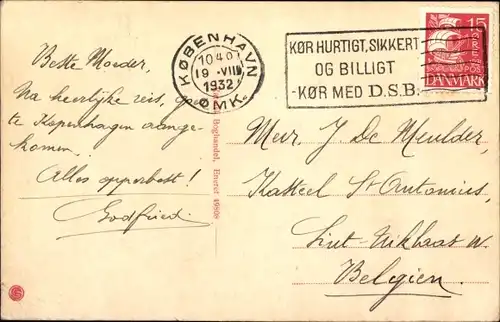 Beste Moeder,
Na heerlijke reis, op
te Kopenhagen aange-
komen.
Alles opperbest!
Godfried.
KØBENHAVN
10 40
19 -VIII
1932
ØMK.
KØR HURTIGT, SIKKERT
OG BILLIGT
-KØR MED D.S.B.
15
ØRE
DANMARK
Boghandel, Eneret
Meur. J. De Meulder,
Kasteel St Antonius,
Sint-Niklaas W.
Belgïen.